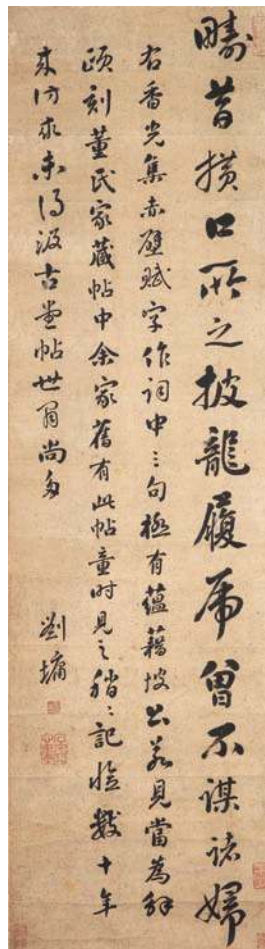 疇昔橫口所之披龍履虎曾不謀諸婦
右香光集赤壁賦字作詞中三句極有蘊藉坡公若見當為解
頤刻董氏家藏帖中余家舊有此帖童時見之稍〻記憶數十年
來訪求未得汲古堂帖世間尚多
劉墉